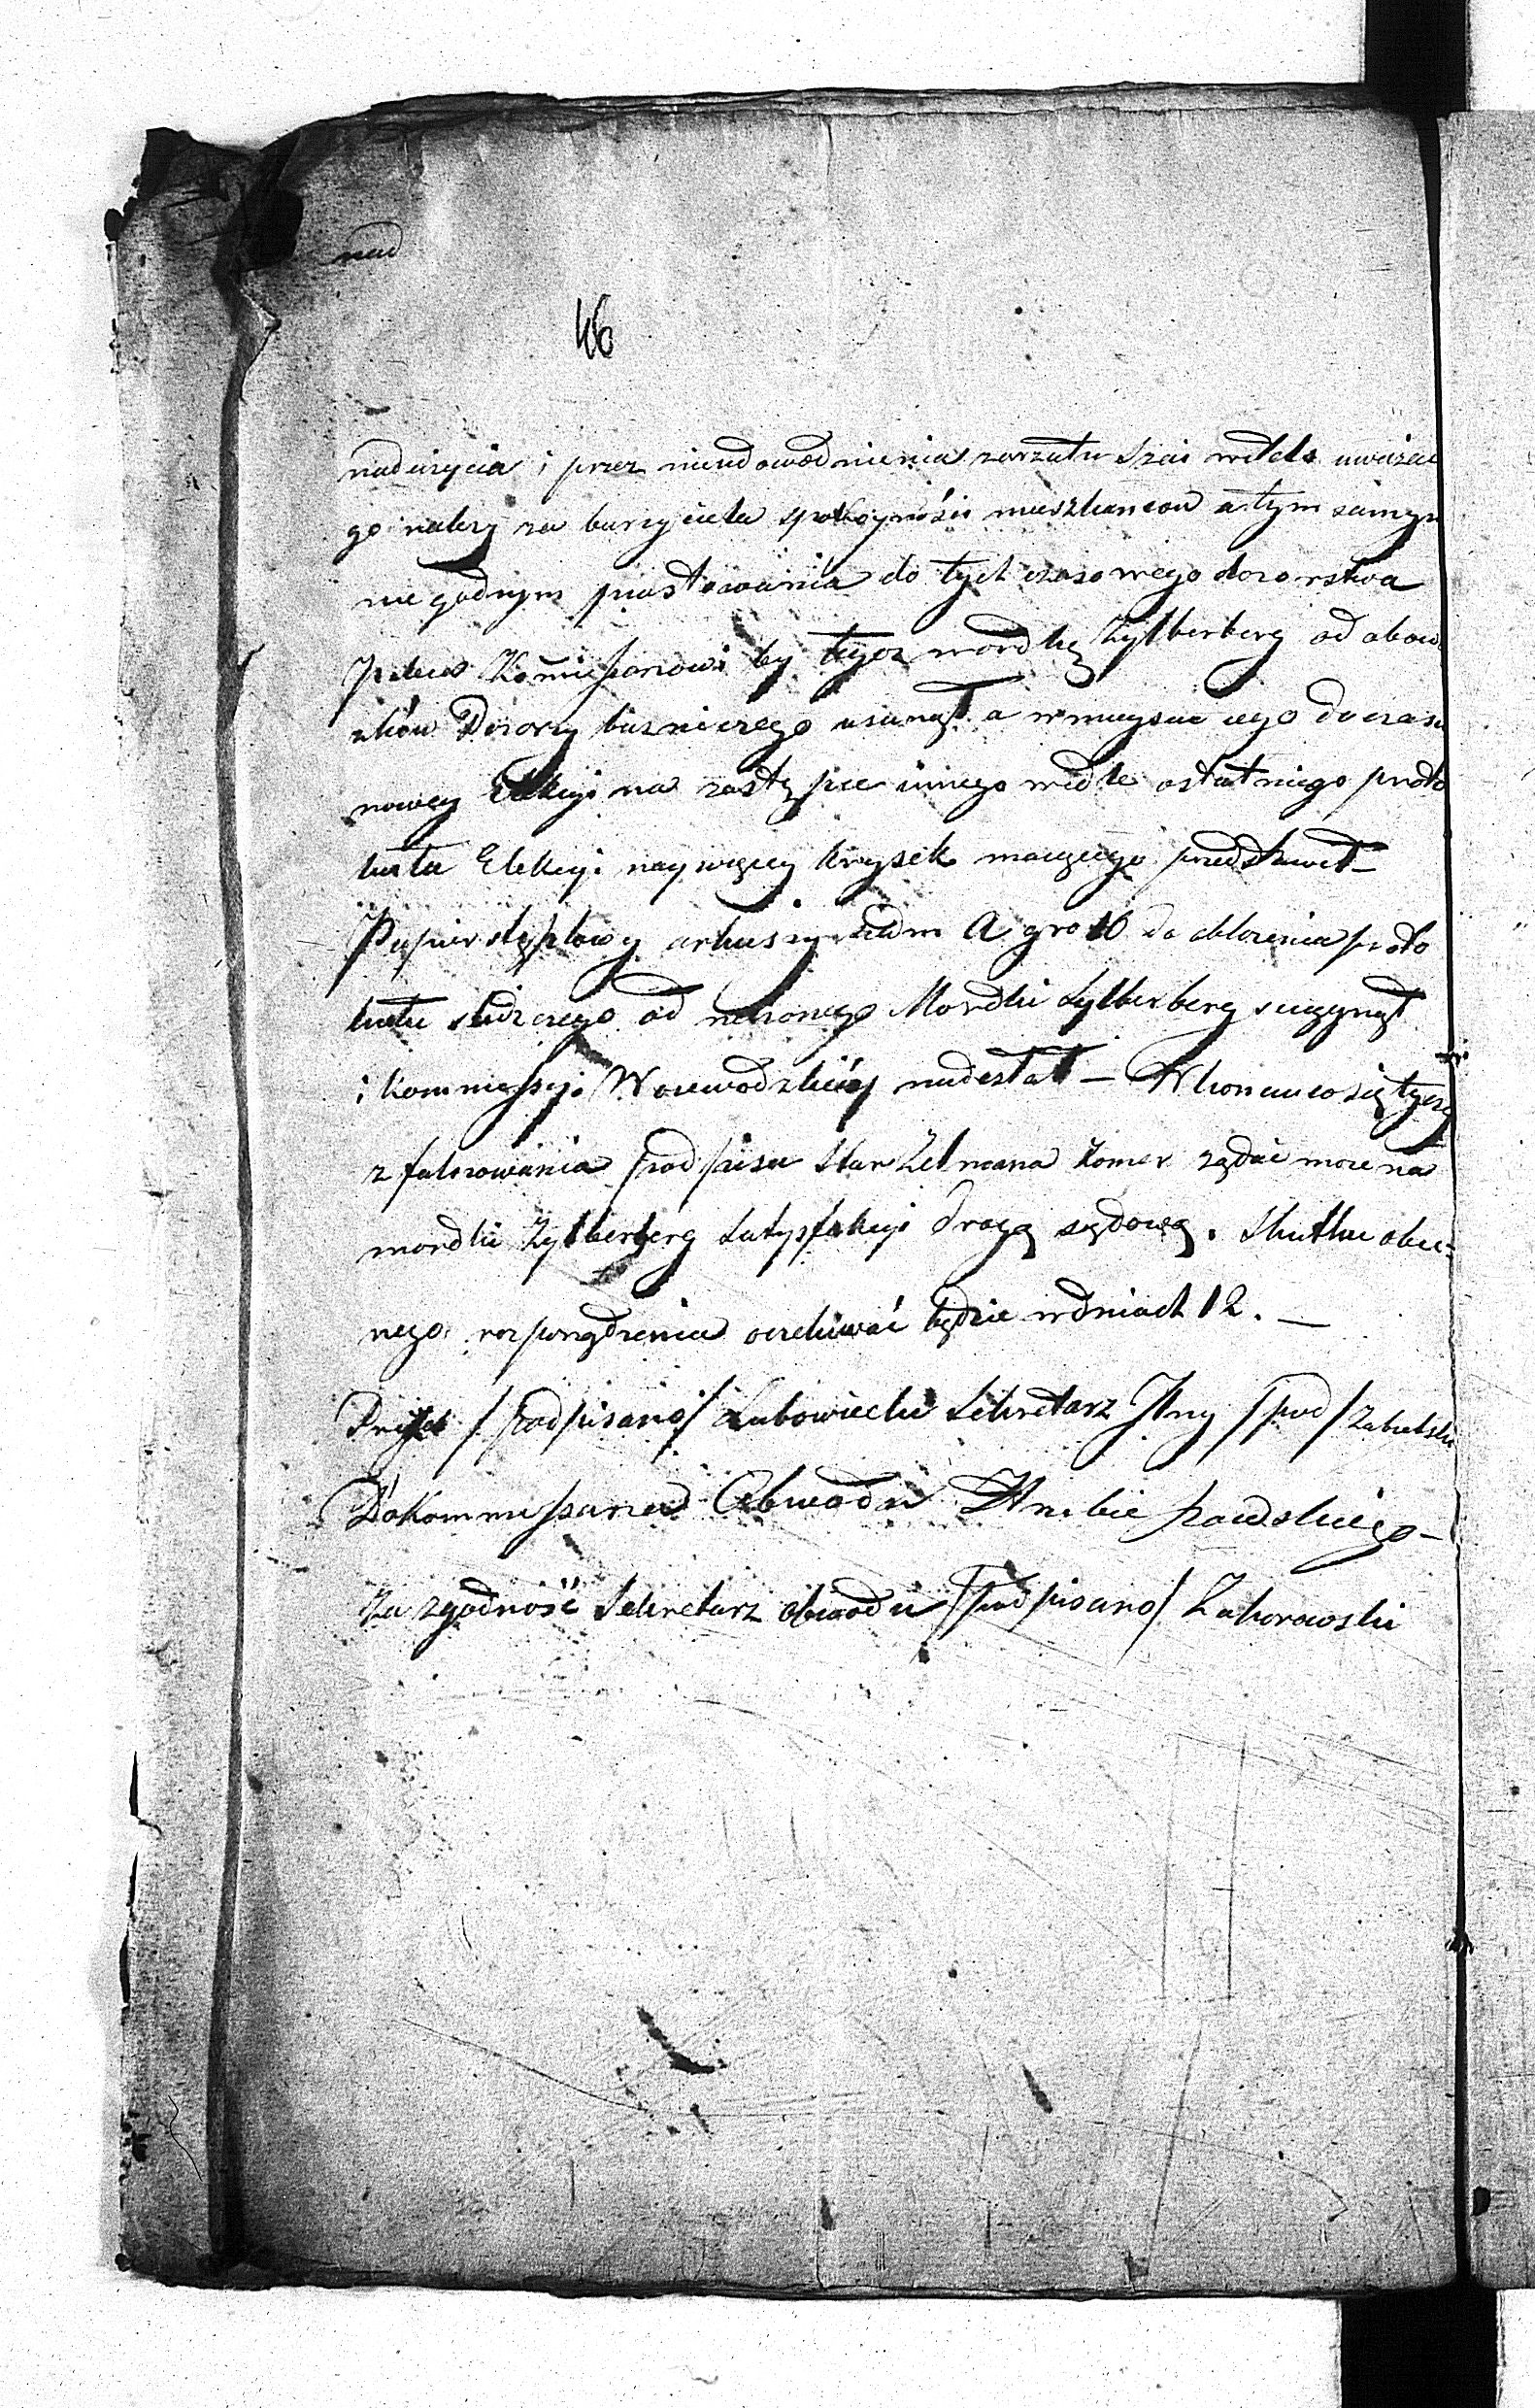 nad
46
nadużycia i przez nieudowodnienia zarzutu Szai uważać
go należy za burzyciela spokoyności mieszkancow a tym samym
niegodnym piastowania do tych czasowego dozorstwa
Kommissarzowi by tegoż mordkę Zylberberg od obow
zków Dozorcy bużniczego usunął a w mieysce iego do czasu
nowey Elekcyi na zastępcę innego wedle ostatniego proto
kułu Elekcyi naywięcey krysek maiącego przedstawił –
Papier stęplowy arkuszy siedm a gro 10 do obłożenia proto
kułu śledczego od rzeczonego Mordki Zylberberg ściągnął
i Kommissyi Woiewodzkiey nadesłał – W koncu co się tycze
zfalszowania podpisu Zelmana żądać może na
mordki Zylberberg Satysfakcyi drogą sądową. Skutku obec=
nego rozporządzenia oczekiwać będzie w dniach 12. –
/podpisano/ Lubowiecki Sekretarz Jlny /pod/ Zabielski
Do Kommissarza Obwodu Hrubieszowskiego –
Za zgodność Sekretarz obwodu /podpisano/ Zaborowski